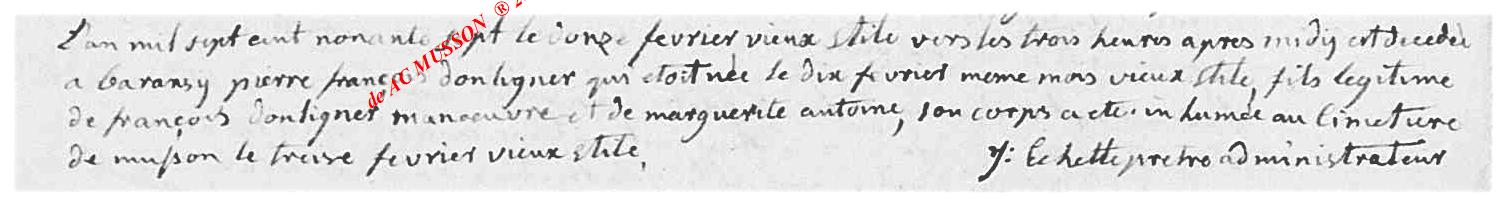 L'an mil sept cent nonante sept le donze fevrier vieux stile vers les trois heures apres midy est decedée
a baranzy pierre françois donligner qui etoit née le dix fevrier meme mois vieux stile, fils legitime
de françois donligner manoeuvre et de marguerite antoine, son corps a ete inhumée au Cimetiere
de musson le treise fevrier vieux stile,
J: Echette pretre administrateur
de AC MUSSON ®